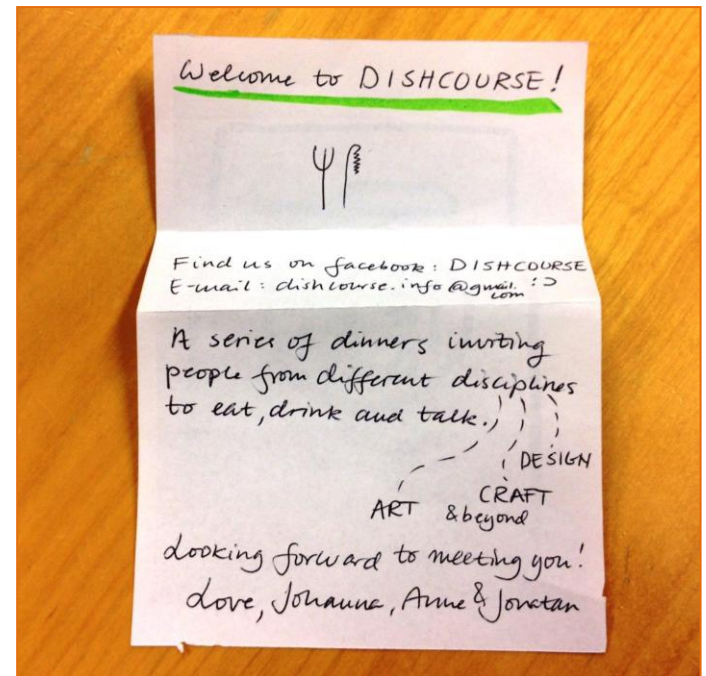 Welcome to DISHCOURSE!
Find us on facebook: DISHCOURSE
E-mail: dishcourse.info@gmail.com :)
A series of dinners inviting
people from different disciplines
to eat, drink and talk.
DESIGN
ART CRAFT
& beyond
Looking forward to meeting you!
Love, Johanna, Anne & Jonatan